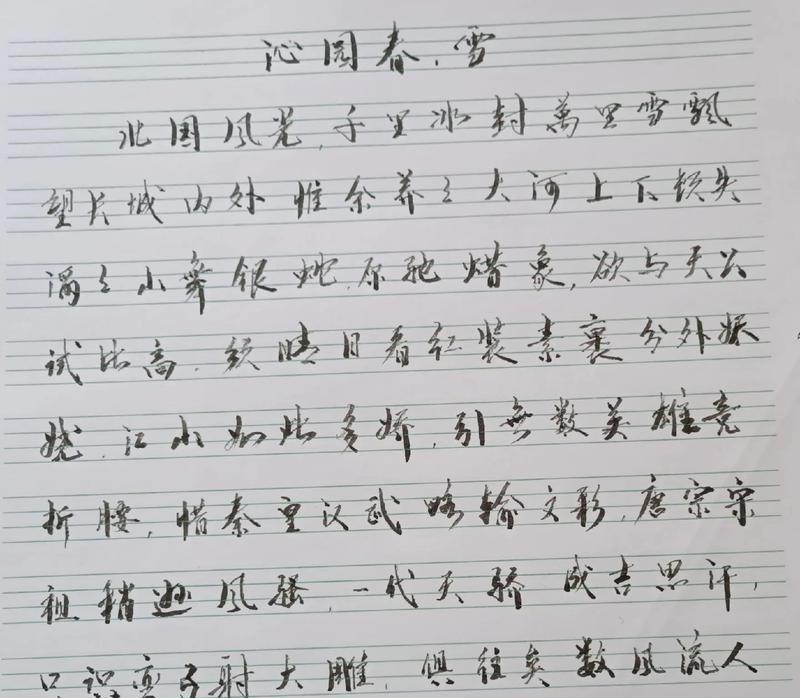 沁园春.雪
北国风光,千里冰封萬里雪飘
望长城内外惟余莽々大河上下顿失
滔々山舞银蛇.原驰蜡象,欲与天公
试比高.须晴日看红装素裹分外妖
娆.江山如此多娇.引無数英雄竞
折腰.惜秦皇汉武略输文彩.唐宗宋
祖稍逊风骚.一代天骄成吉思汗,
只识弯弓射大雕.俱往矣数风流人